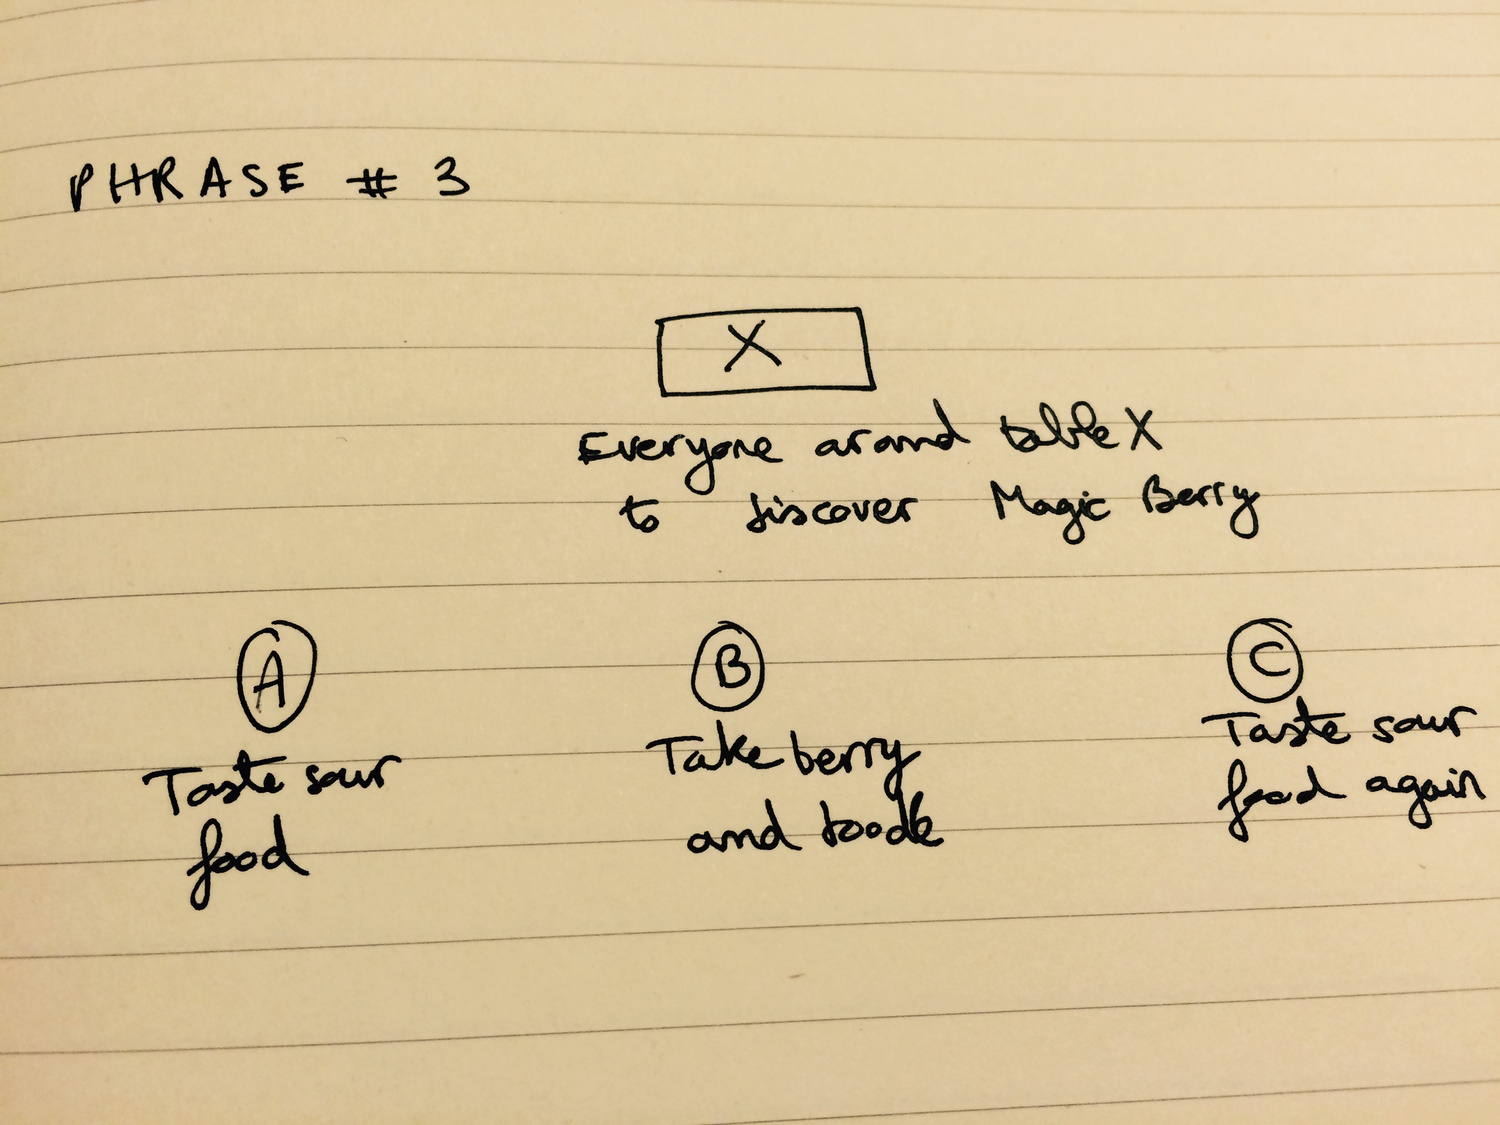 PHRASE # 3
X
Everyone around table X
to discover Magic Berry
A
Taste sour
food
B
Take berry
and
C
Taste sour
food again